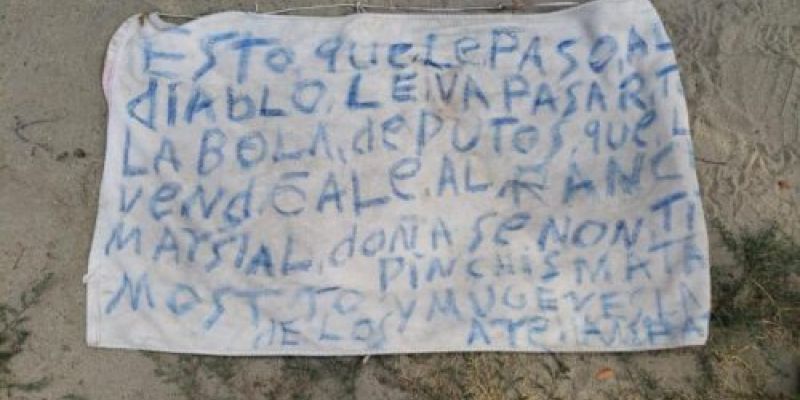 ESTO, que Le PASO, AL
dIAbLO, LE VA PASAR, T
LA BOLA, de PUTOS, que L
vend, E ALe, AL, RANC
MARSIAL, doña SeNON, TI
PINCHIS MATA
MOSTTO y MUGeReS, LA
DE LOS